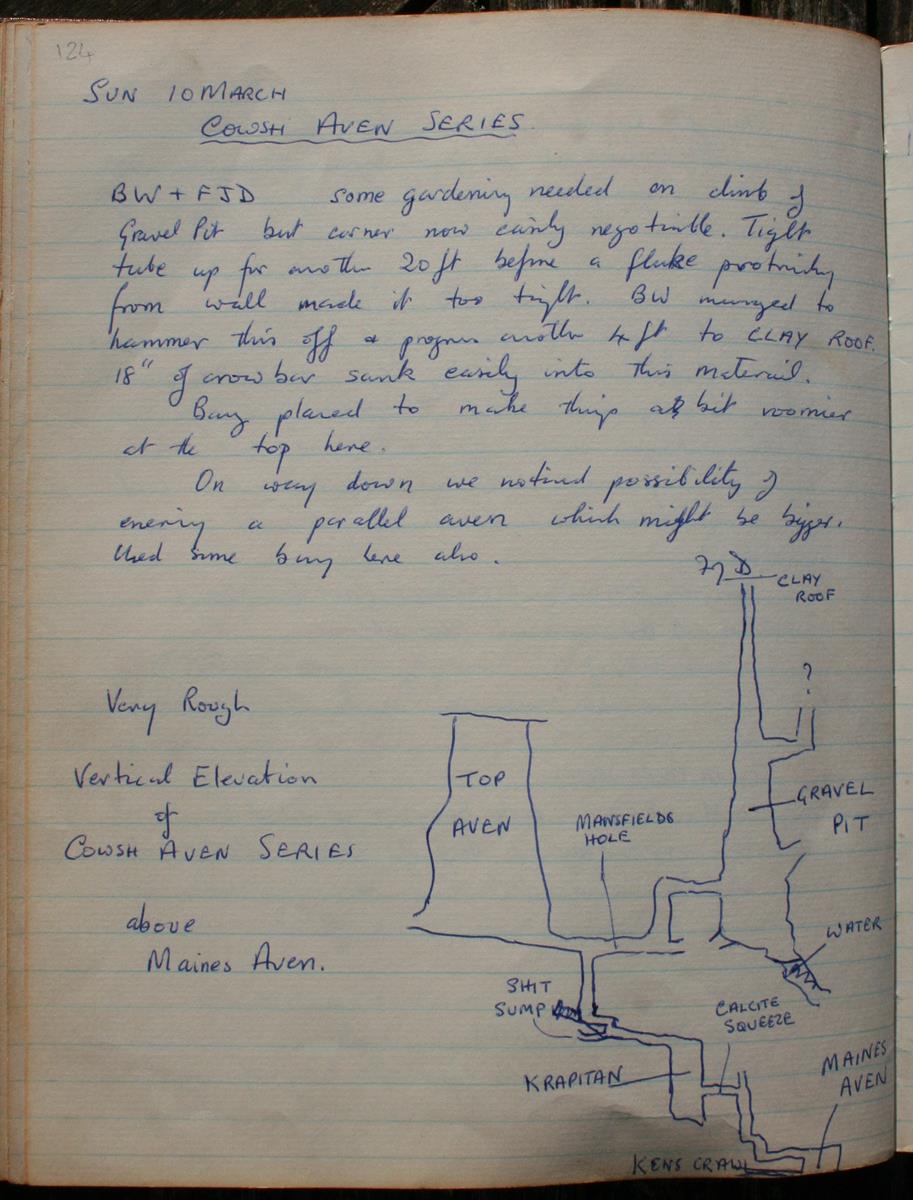 124
SUN 10 MARCH
COWSH AVEN SERIES.
BW + FJD some gardening needed on climb of
Gravel Pit but corner now easily negotiable. Tight
tube up for another 20 ft before a fluke protruding
from wall made it too tight. BW managed to
hammer this off & progress another 4 ft to CLAY ROOF.
18" of crowbar sank easily into this material.
Bang placed to make things a bit roomier
at the top here.
On way down we noticed possibility of
entering a parallel aven which might be bigger.
Used some bang here also.
CLAY
ROOF
?
Very Rough
Vertical Elevation
of
COWSH AVEN SERIES
above
Maines Aven.
TOP
AVEN
MANSFIELDS
HOLE
GRAVEL
PIT
WATER
SHIT
SUMP
CALCITE
SQUEEZE
KRAPITAN
MAINES
AVEN
KENS CRAWL